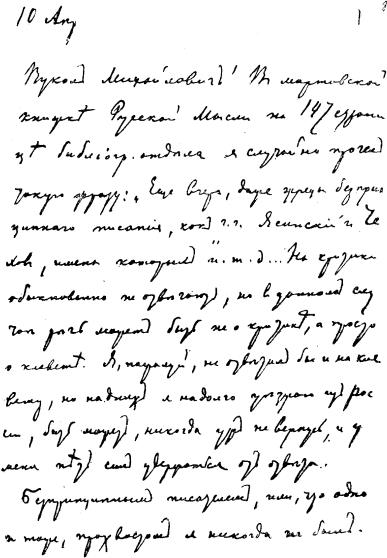 10 Апр
Вукол Михайловичъ! Въ мартовской
книжкѣ Русской Мысли на 147 страни
цѣ библіогр. отдѣла я случайно прочелъ
такую фразу: „Еще вчера, даже жрецы безприн
ципнаго писанія, какъ г.г. Ясинскій и Че
ховъ, имена которыхъ" и. т. д... На критики
обыкновенно не отвѣчаютъ, но въ данномъ слу
чаѣ рѣчь можетъ быть не о критикѣ, а просто
о клеветѣ. Я, пожалуй, не отвѣтилъ бы и на кле
вету, но на дняхъ я надолго уѣзжаю изъ Рос
сіи, быть можетъ, никогда ужъ не вернусь, и у
меня нѣтъ силъ удержаться отъ отвѣта.
Безпринципнымъ писателемъ, или, что одно
и то же, прохвостомъ я никогда не былъ.